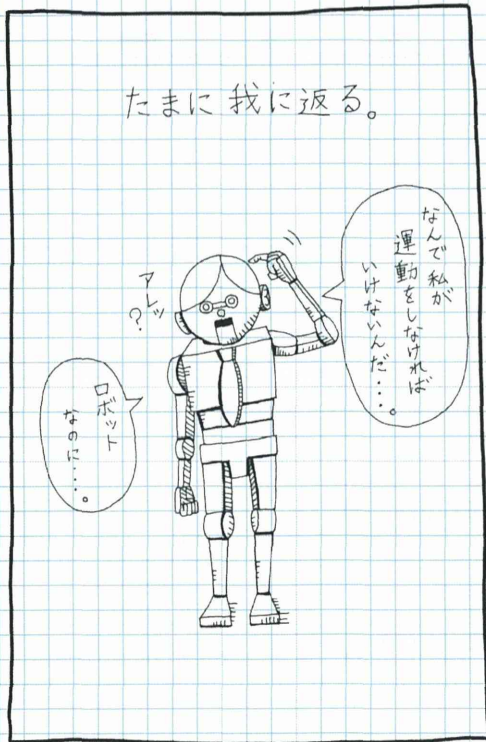 たまに我に返る。
なんで私が
運動をしなければ
いけないんだ・・・。
アレッ
?
ロボット
なのに・・・。